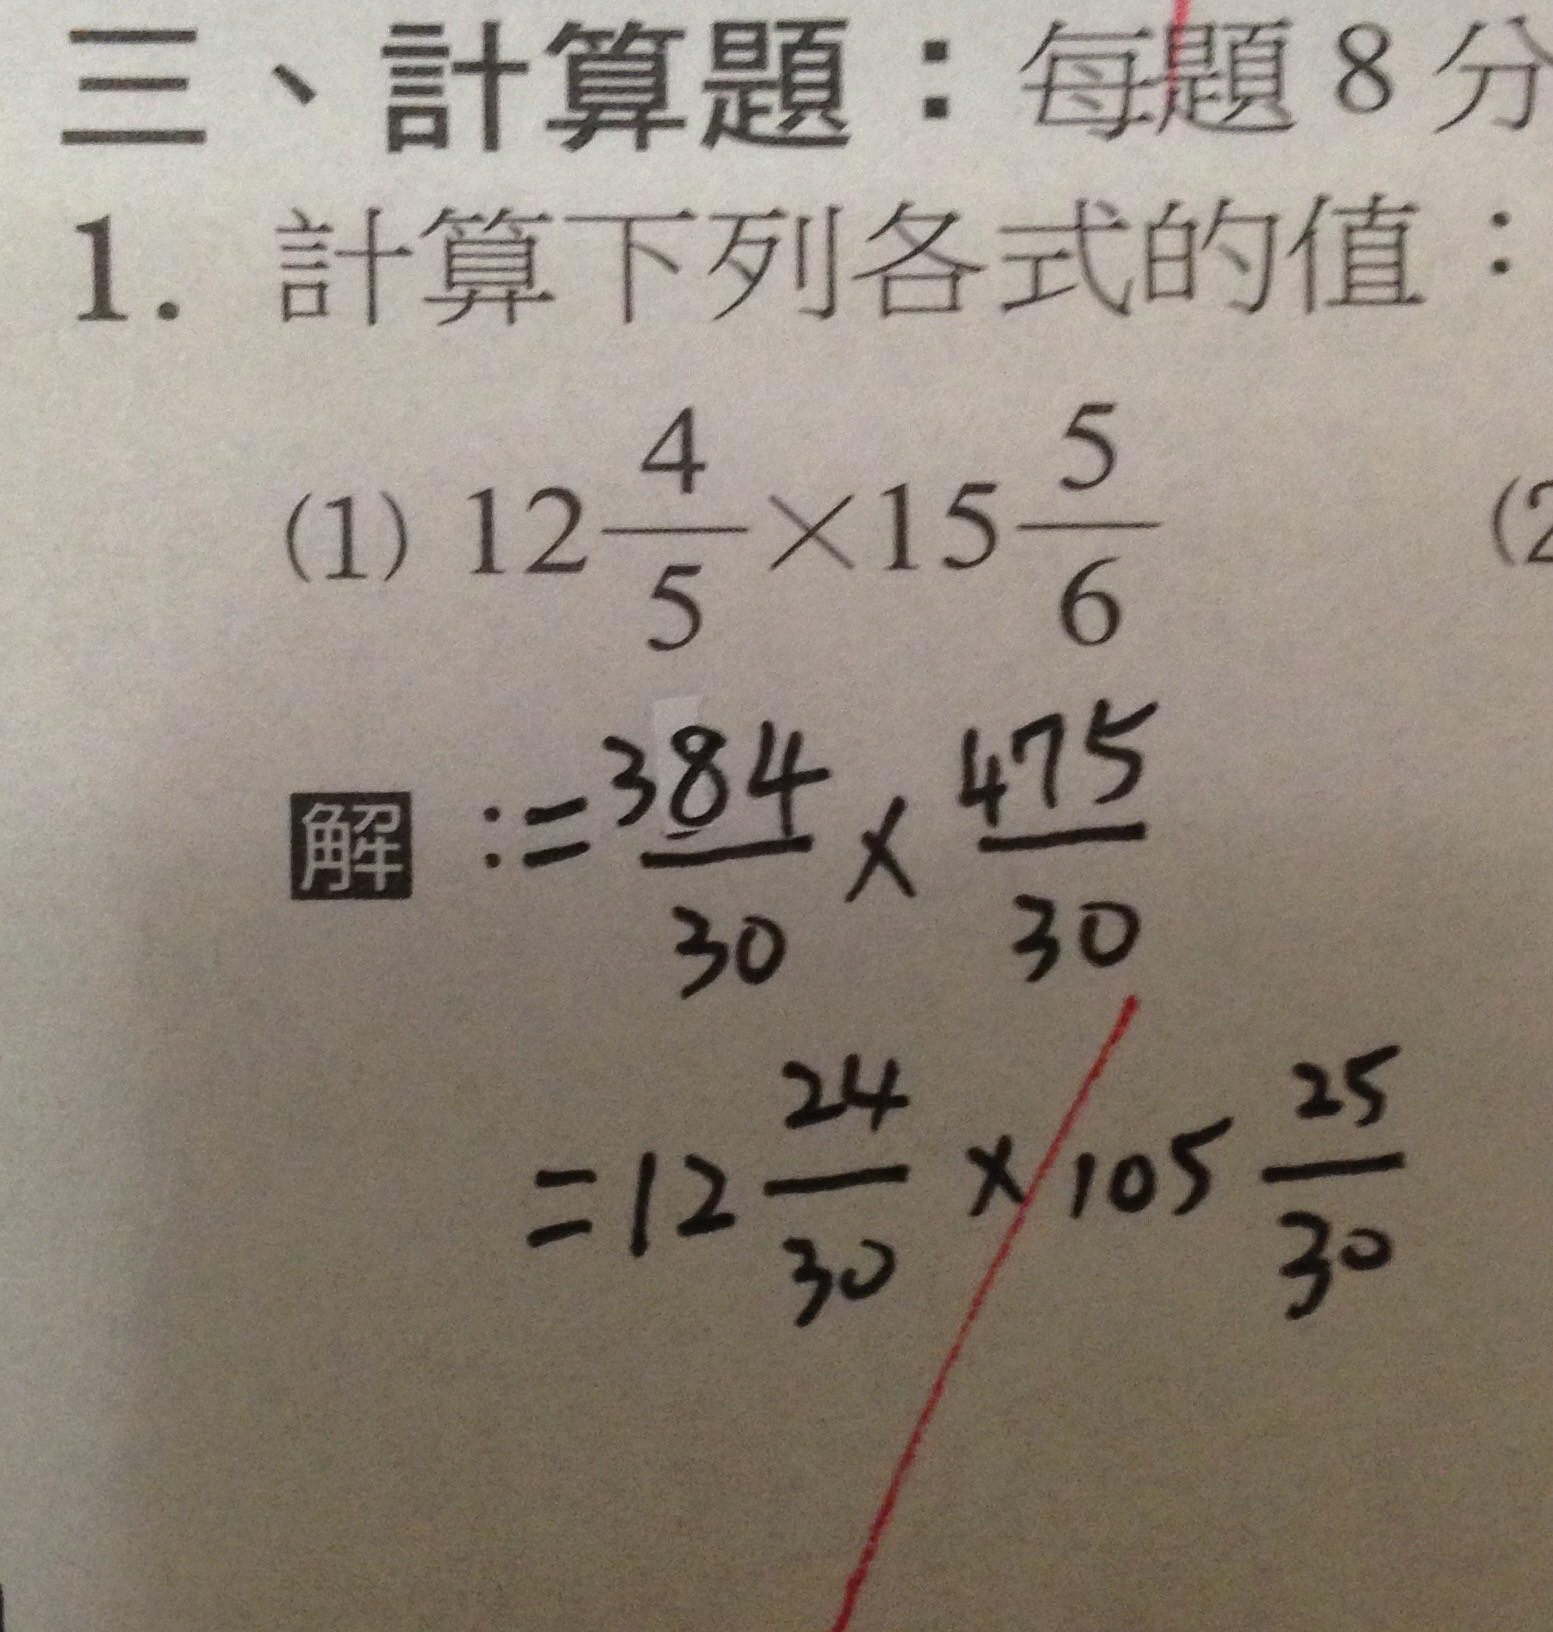 三、計算題：每題8分
1. 計算下列各式的值：
(1) 12 4/5 × 15 5/6 (2
解：= 384/30 × 475/30
= 12 24/30 × 105 25/30